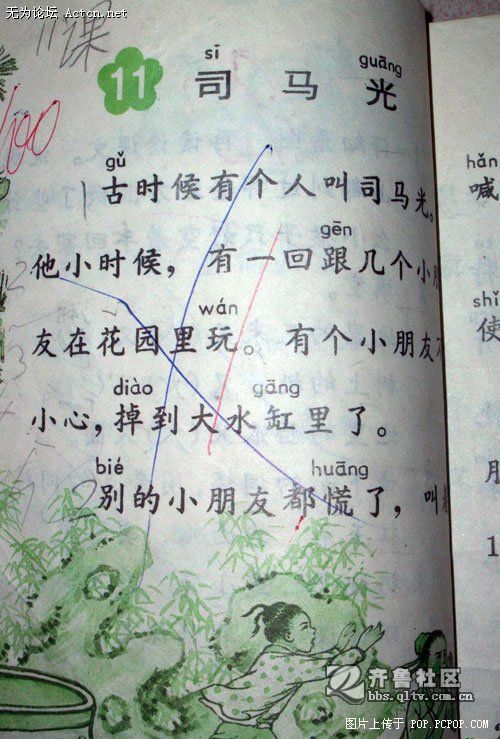 无为论坛 Actcn.net
www.actcn.net
11课
sī guāng
11 司马光
100
gǔ
古时候有个人叫司马光。
gēn
他小时候，有一回跟几个小
wán
友在花园里玩。有个小朋友
diào gāng
小心，掉到大水缸里了。
bié huāng
别的小朋友都慌了，叫
hǎn
喊
shǐ
使
月
1
齐鲁社区
bbs.qltv.com.cn
图片上传于 POP.PCPOP.COM